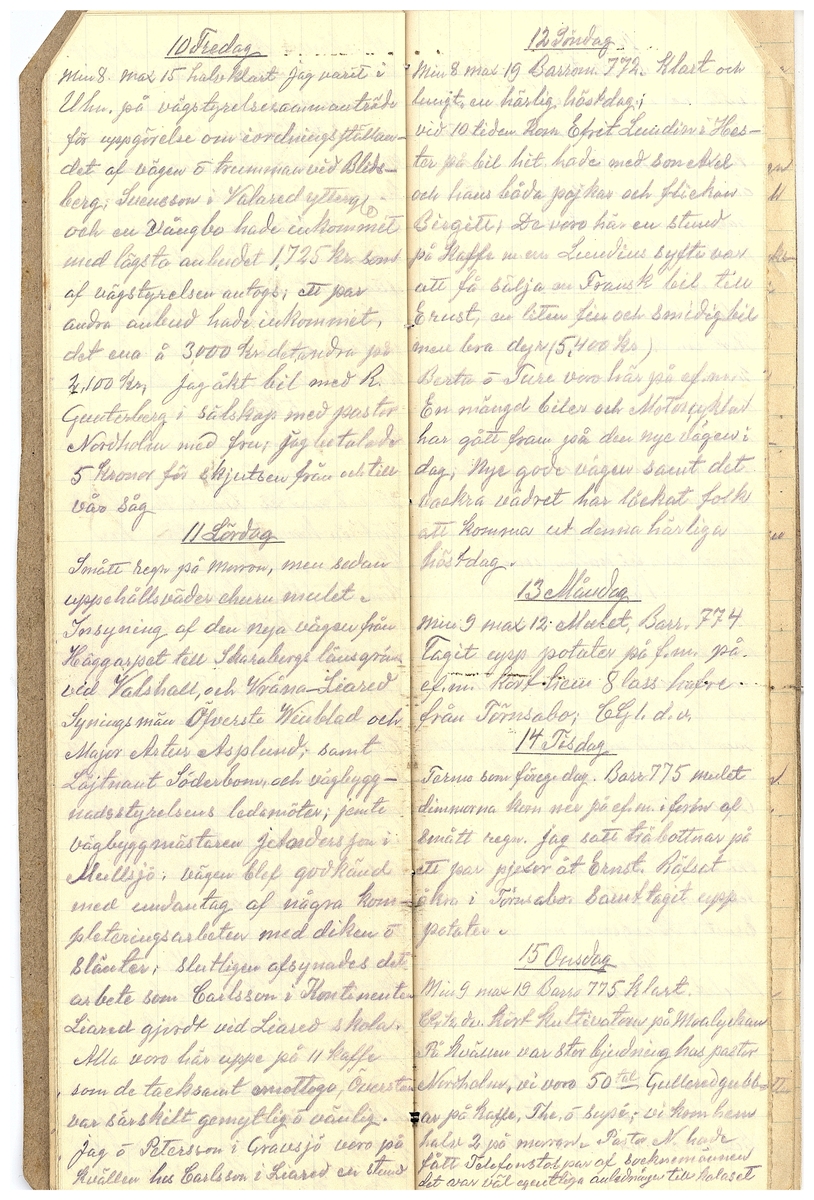 10 Fredag
Min 8. max 15 halvklart Jag varit i
Uhn. på vägstyrelsesammanträde
för uppgörelse om iordningställan-
det af vägen ō trumman vid Bleds-
berg; Svensson i Valared ytterg.
och en Vångbo hade inkommit
med lägsta anbudet 1,725 Kr. som
af vägstyrelsen antogs; ett par
andra anbud hade inkommit,
det ena å 3,000 Kr det andra på
4,100 Kr, jag åkt bil med R.
Gunterberg i sälskap med pastor
Nordholm med fru; jag betalade
5 Kronor för skjutsen från och till
vår såg
11 Lördag
Smått regn på morron, men sedan
uppehållsväder ehuru mulet.
Insyning af den nya vägen från
Häggarpet till Skarabergs länsgräns
vid Valshall, och Vråna-Liared
Syningsmän Öfverste Winblad och
Major Artur Asplund; samt
Löjtnant Söderbom, och vägbygg-
nadsstyrelsens ledamöter; jemte
vägbyggmästaren Andersson i
Mullsjö; vägen blef godkänd
med undantag af några kom-
pleteringsarbeten med diken ō
slänter; slutligen afsynades det
arbete som Carlsson i Kontinenten
Liared gjordt vid Liared skola.
Alla voro här uppe på 11 kaffe
som de tacksamt emottogo, Översten
var särskilt gemytlig ō vänlig.
Jag ō Petersson i Gravsjö voro på
kvällen hos Carlsson i Liared en stund
12 Söndag
Min 8 max 19 Barrom. 772. Klart och
lungt, en härlig höstdag;
vid 10 tiden kom Efrit Lundin i Hes-
tar på bil hit, hade med son Axel
och hans båda pojkar och flickan
Birgitt; De voro här en stund
på Kaffe m.m Lundins syfte var
att få sälja en Fransk bil till
Ernst, en liten fin och smidig bil
men bra dyr (5,400 Kr)
Berta ō Ture voro här på ef.m.
En mängd biler och Motorcyklar
har gått fram på den nye vägen i
dag; Nye gode vägen samt det
vackra vädret har lockat folk
att komma ut denna härliga
höstdag.
13 Måndag
Min 9 max 12. Mulet, Barr. 774
Tagit upp potater på f.m. på.
ef.m. kört hem 8 lass hafre
från Törnsabo;
14 Tisdag
Termo som föreg. dag. Barr 775 mulet
dimmorna kom ner på ef.m. i form af
smått regn. Jag satt träbottnar på
ett par pjexor åt Ernst. Räfsat
åkra i Törnsabo. Samt tagit upp
potater.
15 Onsdag
Min 9 max 19 Barro 775 Klart.
kört kultivatorn på Moalyckan
På kvällen var stor bjudning hos pastor
Nordholm, vi voro 50 tal Gulleredgubb-
ar på kaffe, The, ō supé; vi kom hem
halv 2 på morron. Pastor N. hade
fått Telefonstol par af sockenmännen
det var väl egentliga anledningen till kalaset